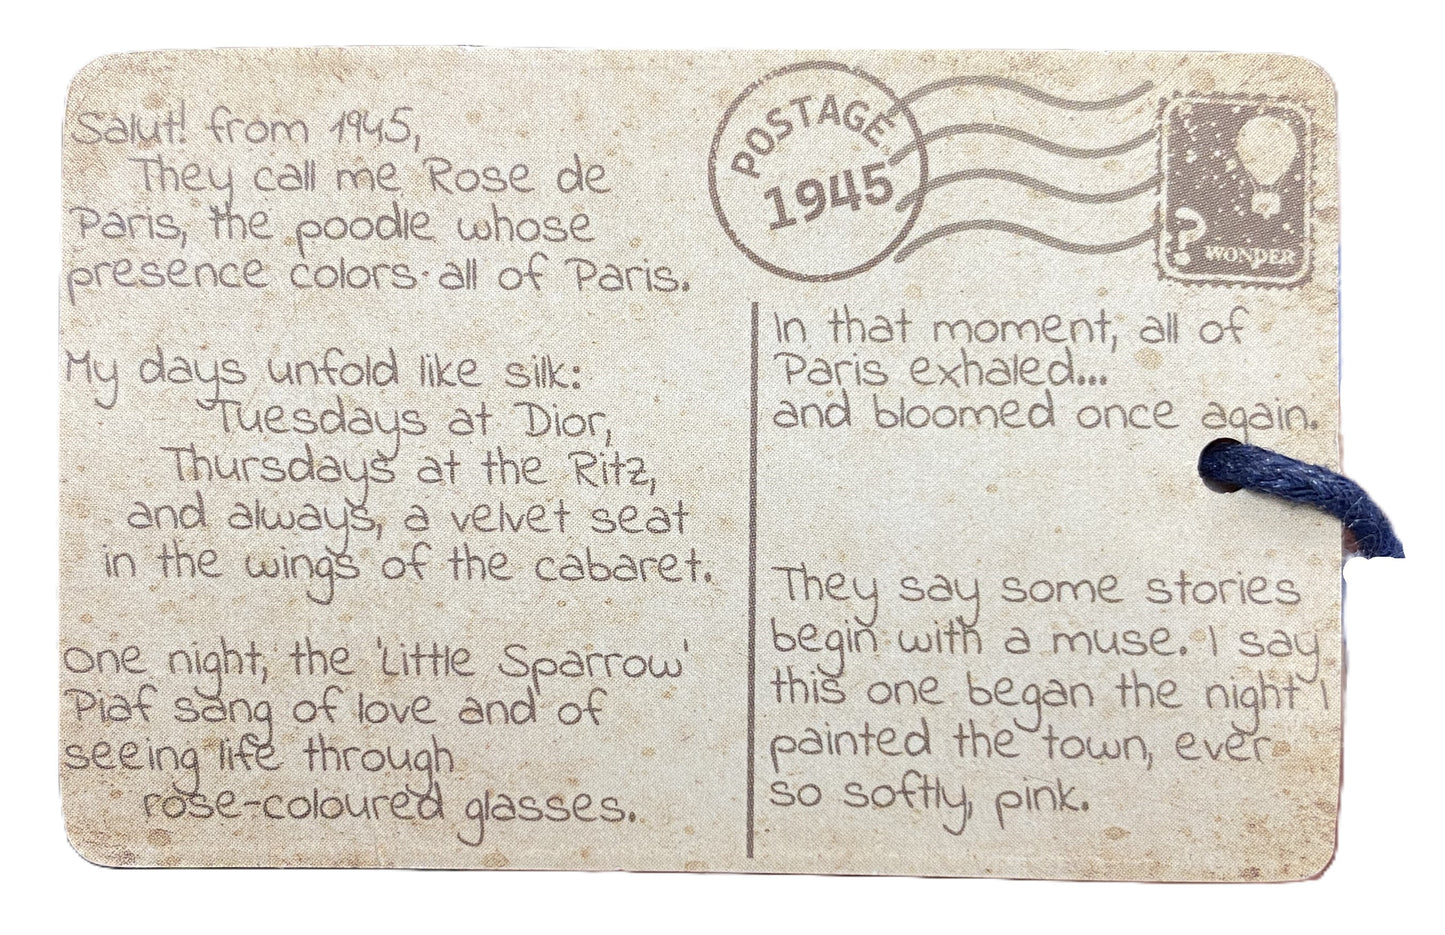 Salut! from 1945,
They call me Rose de
Paris, the poodle whose
presence colors all of Paris.
My days unfold like silk:
Tuesdays at Dior,
Thursdays at the Ritz,
and always, a velvet seat
in the wings of the cabaret.
One night, the 'Little Sparrow'
Piaf sang of love and of
seeing life through
rose-coloured glasses.
POSTAGE
1945
? WONDER
In that moment, all of
Paris exhaled...
and bloomed once again.
They say some stories
begin with a muse. I say
this one began the night I
painted the town, ever
so softly, pink.